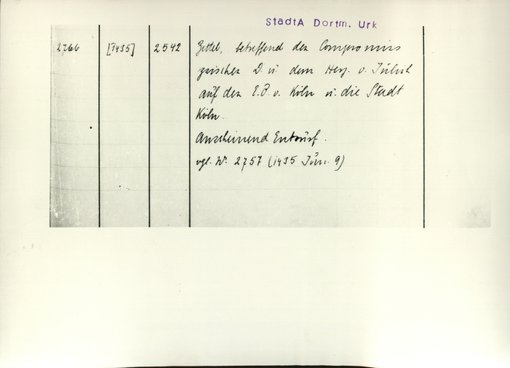 StadtA Dortm. Urk
2766 [1435] 2542 Zettel, betreffend den Compromiss
zwischen D. u. dem Herz. v. Jülich
auf den E.B. v. Köln u. die Stadt
Köln.
Anscheinend Entwurf.
vgl. Nr. 2757 (1435 Jun. 9)